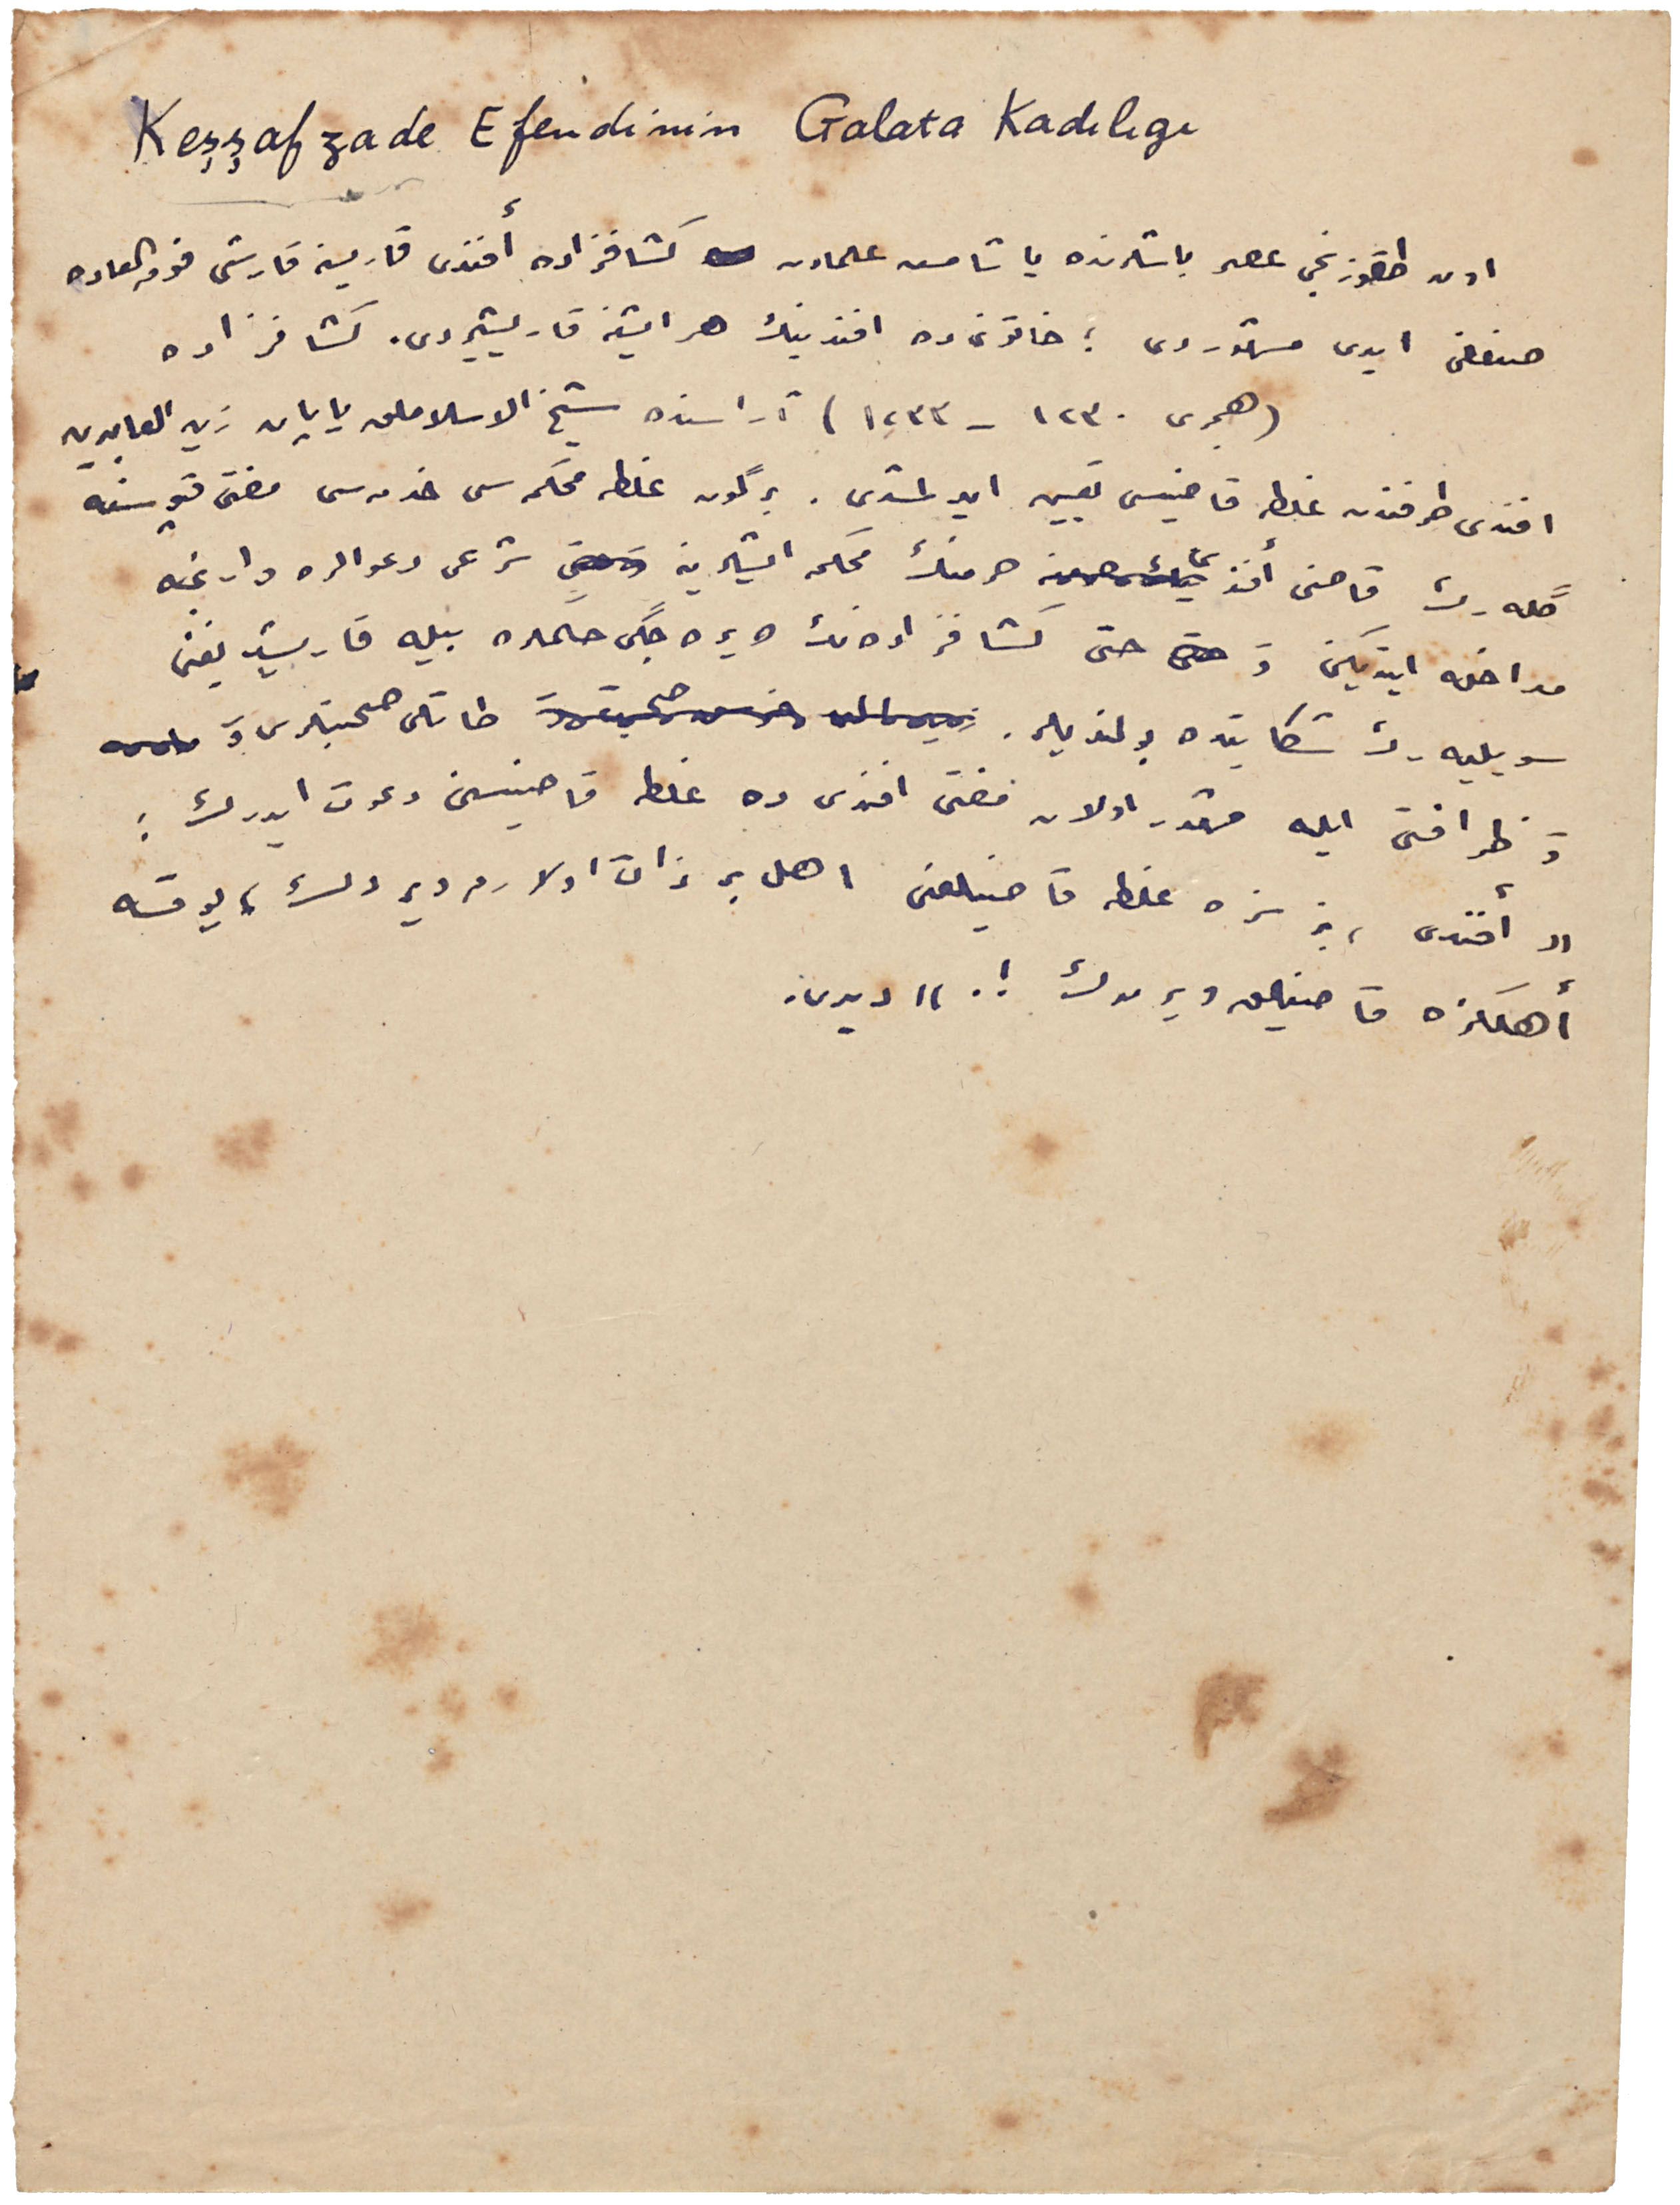 Keşşafzade Efendinin Galata Kadılıgı
اون طقوزنجی عصر باشلرنده یاشامش علمادن كشافزاده أفندی قاریسنه قارشی فوق العاده
ضعفی ایدی مشهوردی ؛ خاتونی ده افندینك هر ایشنه قاریشیردی. كشافزاده
(هجری ١٢٣٠ ـ ١٢٣٣) آراسنده شیخ الاسلاملق یاپان زین العابدین
افندی طرفندن غلطه قاضیسی تعیین ایدلمشدی . برگون غلطه محكمه سی خدمه سی مفتی قپوسنه
گله رك قاضی أفندی حرمنك محكمه ایشلرینه شرعی دعوالره وارنجه
مداخله ایتدیگنی وَ حتی كشافزاده نك ویره جگی حكملره بیله قاریشدیغنی
سویلیه رك شكایتده بولندیلر . طاتلی صحبتلری وَ
وَ ظرافتی ایله مشهور اولان مفتی افندی ده غلطه قاضیسنی دعوت ایدرك :
" أفندی ، بز سزه غلطه قاضیلغنی اهل بر ذات اولارق ویردك ، یوقسه
أهلكزه قاضیلق ویرمدك !. " دیدی.